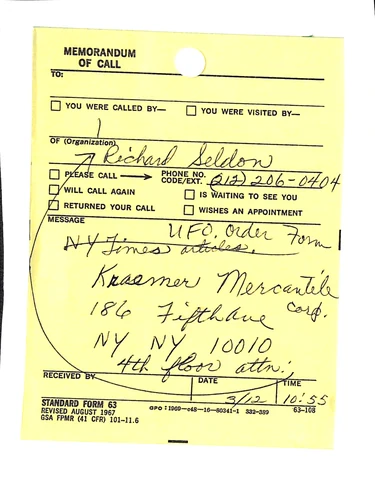 MEMORANDUM
OF CALL
TO:
YOU WERE CALLED BY—
YOU WERE VISITED BY—
OF (Organization)
Richard Seldon
PLEASE CALL
PHONE NO.
CODE/EXT. (212) 206-0404
WILL CALL AGAIN
IS WAITING TO SEE YOU
RETURNED YOUR CALL
WISHES AN APPOINTMENT
MESSAGE
UFO. Order Form
NY Times articles.
Kraemer Mercantile
Corp.
186 Fifth Ave
NY NY 10010
4th floor attn:
RECEIVED BY
DATE
TIME
3/12
10:55
STANDARD FORM 63
REVISED AUGUST 1967
GSA FPMR (41 CFR) 101-11.6
GPO : 1969—c48—16—80341-1 332-389
63-108